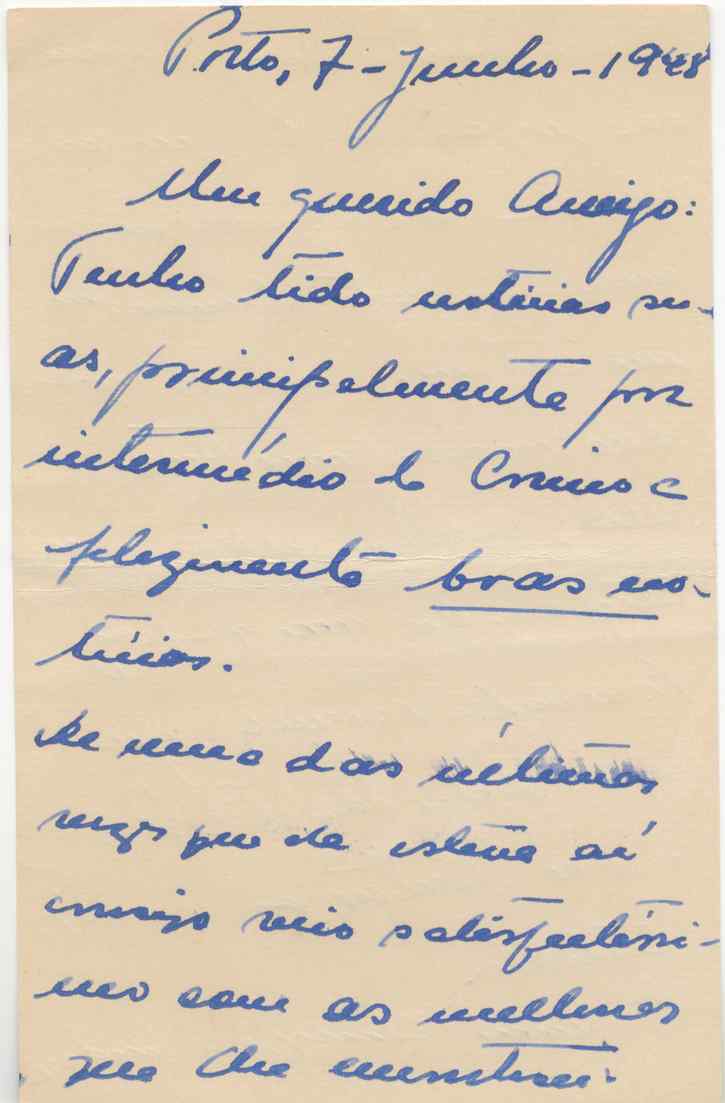 Porto, 7-Junho-1948
Meu querido Amigo:
Tenho tido notícias su-
as, principalmente por
intermédio do e
felizmente boas no-
tícias.
De uma das últimas
vezes que ele esteve aí
comigo veio satisfeitíssi-
mo com as melhoras
que lhe encontrou.